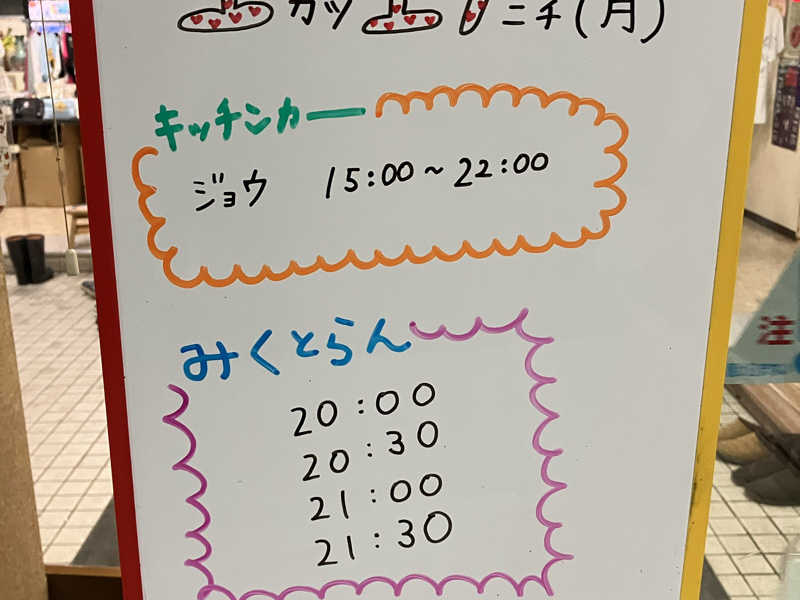 ガツ 21ニチ(月)
キッチンカー
ジョウ 15:00~22:00
みくとらん
20:00
20:30
21:00
21:30
注